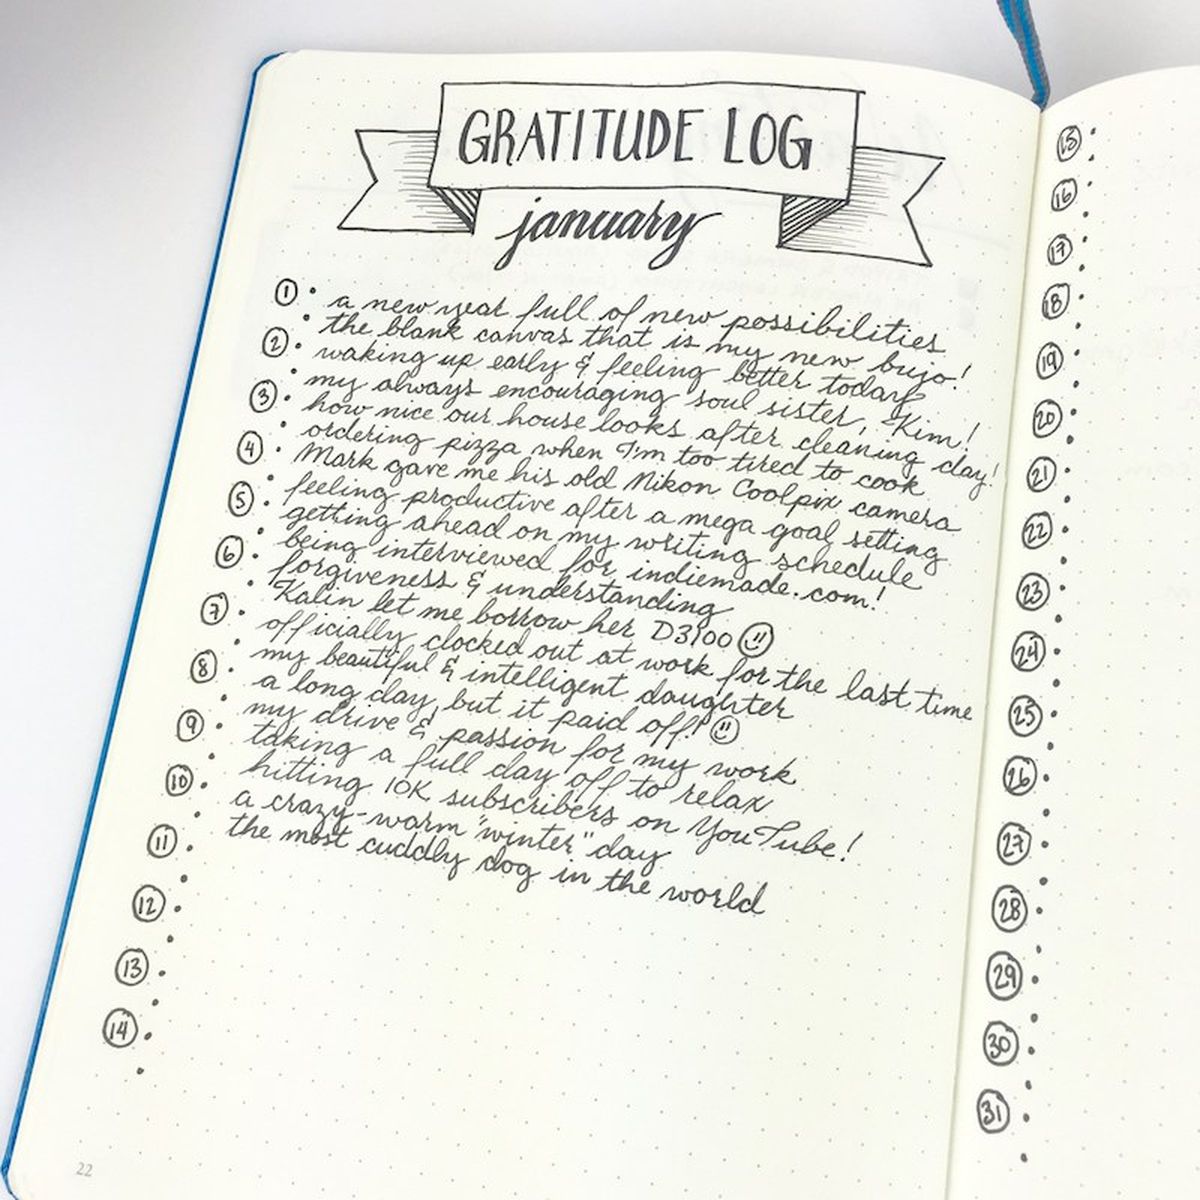 GRATITUDE LOG
january
1 • a new year full of new possibilities
• the blank canvas that is my new bujo!
2 • waking up early & feeling better today
• my always encouraging soul sister, Kim!
3 • how nice our house looks after cleaning day!
• ordering pizza when I'm too tired to cook
4 • Mark gave me his old Nikon Coolpix camera
• feeling productive after a mega goal setting
5 • getting ahead on my writing schedule
• being interviewed for indiemade.com!
6 • forgiveness & understanding
• Kalin let me borrow her D3100 ☺
7 • officially clocked out at work for the last time
• my beautiful & intelligent daughter
8 • a long day, but it paid off! ☺
• my drive & passion for my work
9 • taking a full day off to relax
• hitting 10K subscribers on YouTube!
10 • a crazy-warm "winter" day
• the most cuddly dog in the world
11 •
•
12 •
•
13 •
•
14 •
•
22
15 •
•
16 •
•
17 •
•
18 •
•
19 •
•
20 •
•
21 •
•
22 •
•
23 •
•
24 •
•
25 •
•
26 •
•
27 •
•
28 •
•
29 •
•
30 •
•
31 •
•